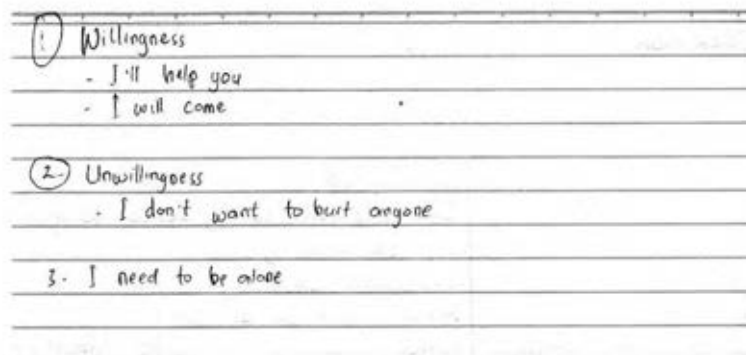 1 Willingness
- I'll help you
- I will come
2. Unwillingness
- I don't want to hurt anyone
3. I need to be alone